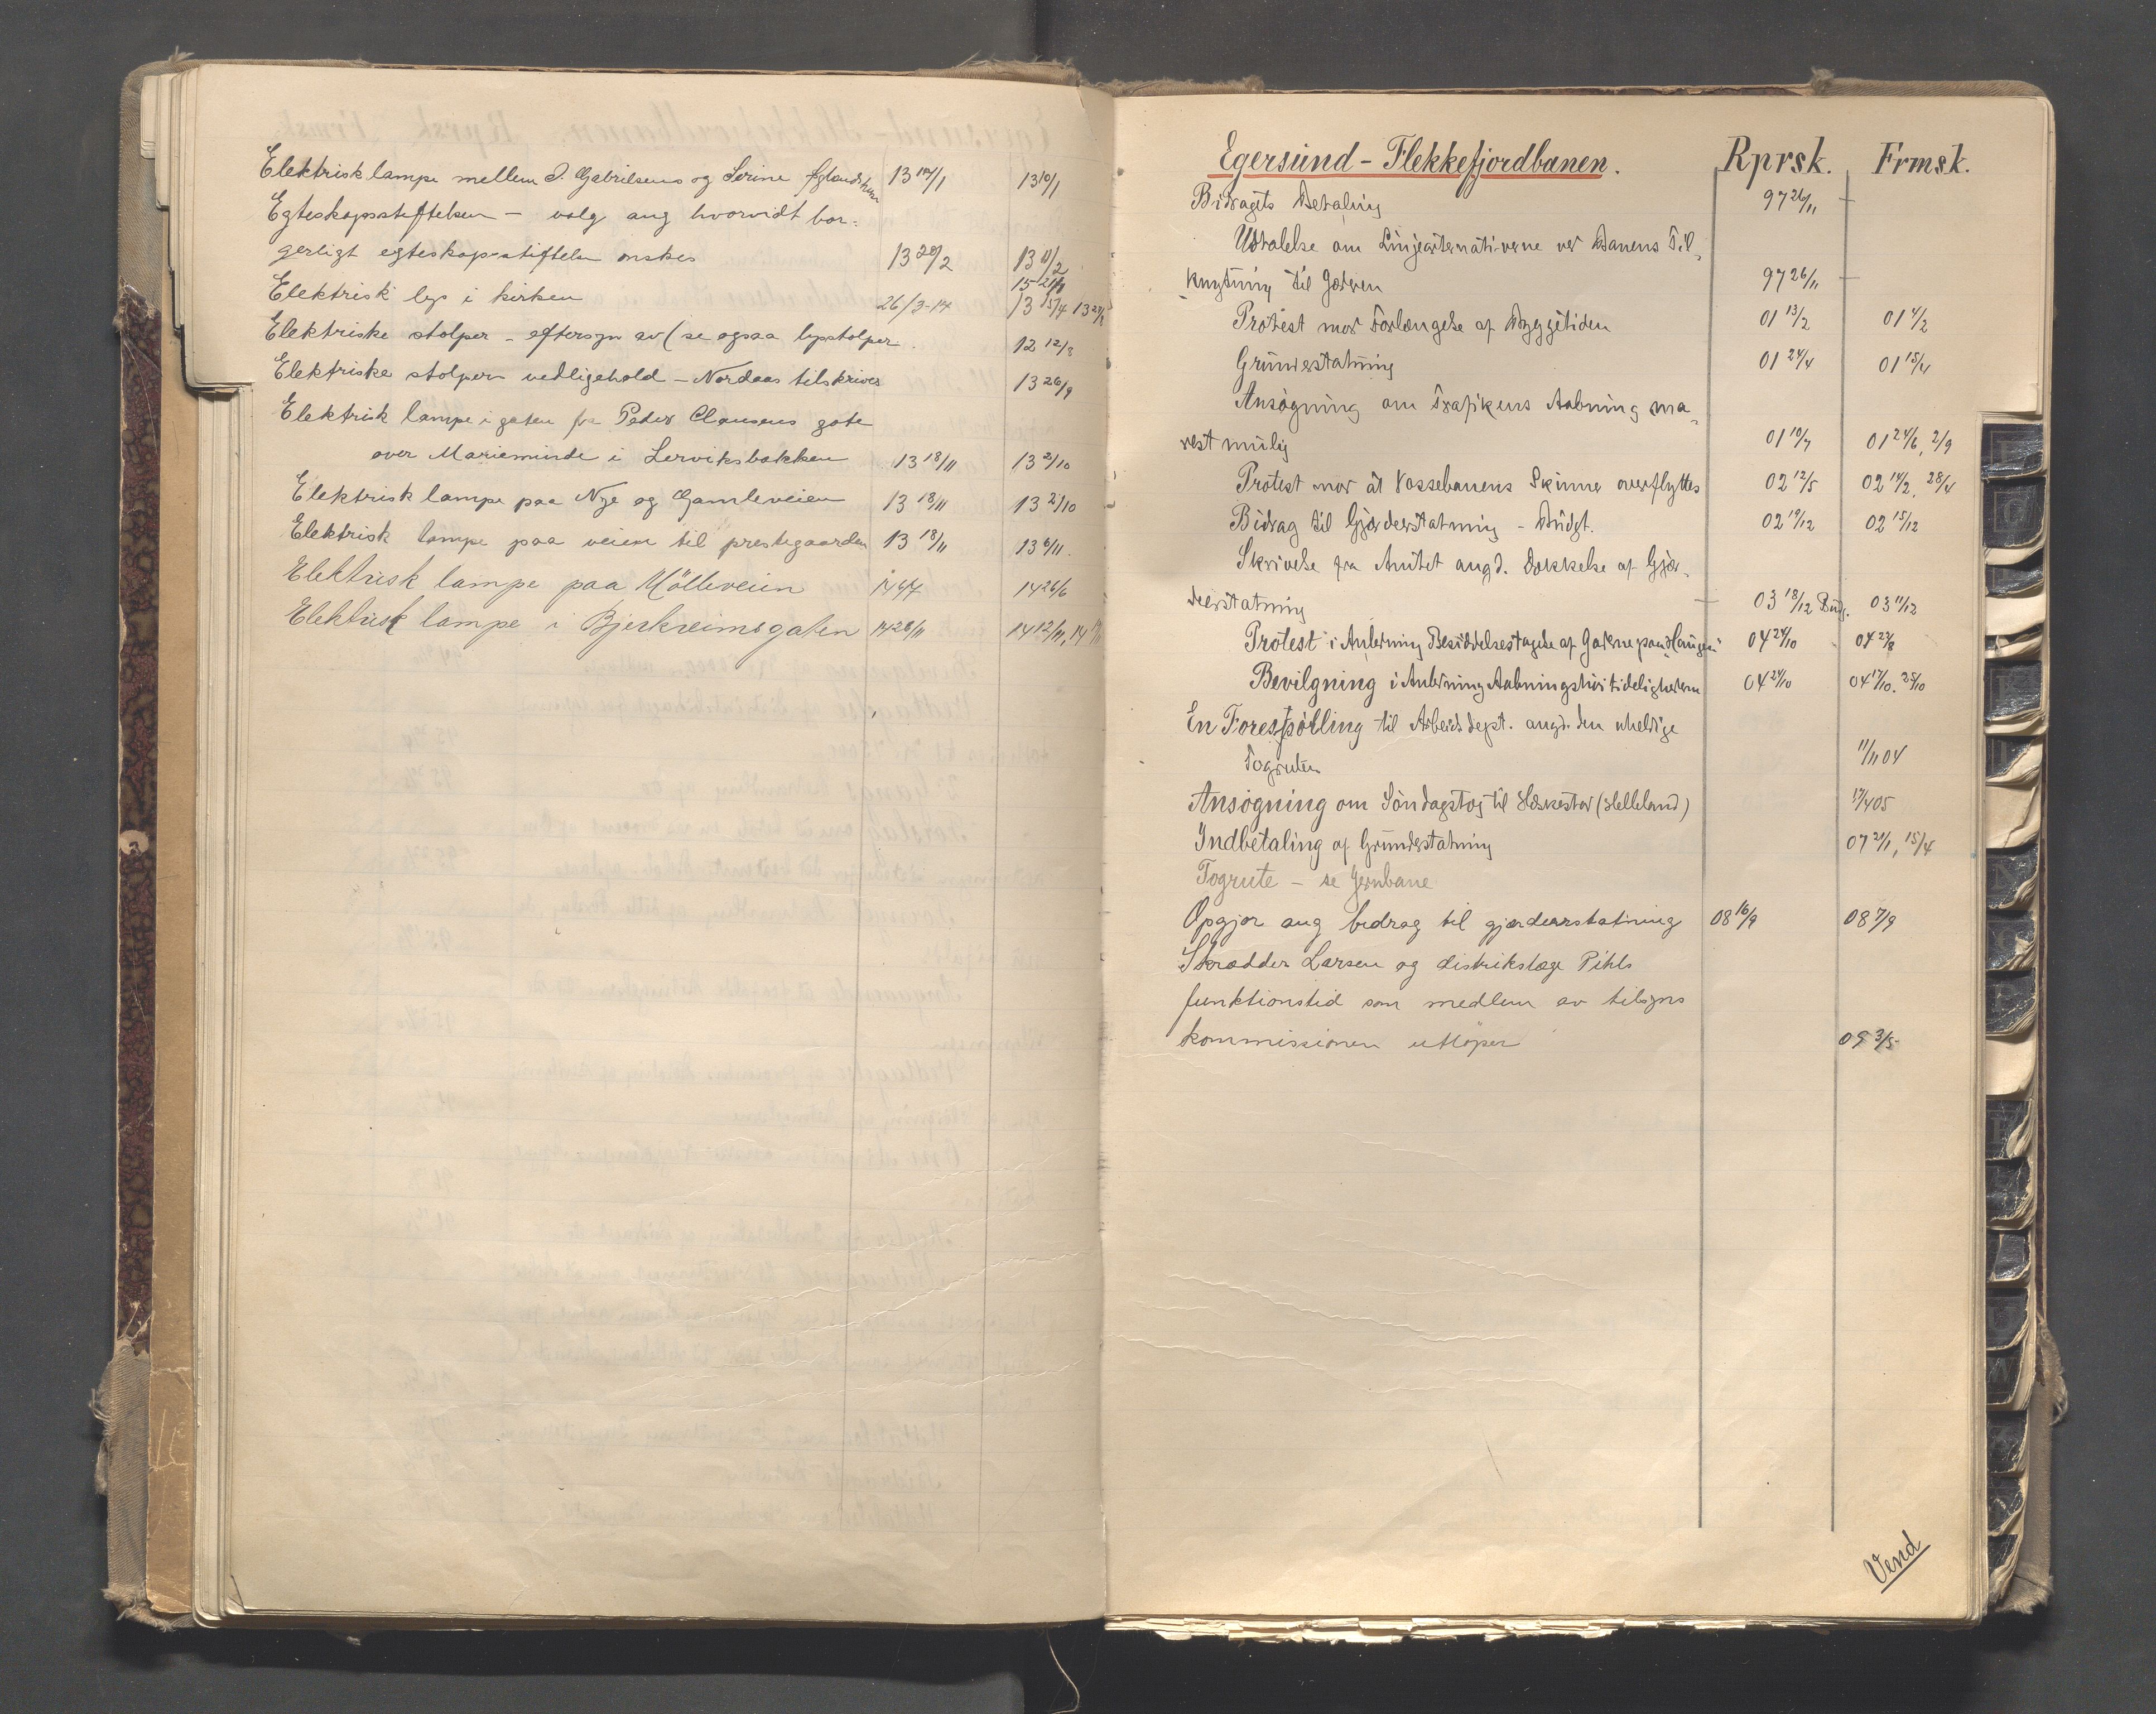 Elektrisk lampe mellem O. Gabrielsens og Serine 13 17/1 13 10/1
Egteskapsstiftelsen – valg ang hvorvidt bor-
gerligt egteskapsstiftelse ønskes 13 20/2 13 11/2
Elektrisk lys i kirken 26/3-14 13 15/4
Elektriske stolper – eftersyn av (se ogsaa lysstolper. 12 12/8
Elektriske stolpers vedligehold – Nordaas tilskrives 13 26/9
Elektrisk lampe i gaten fra Peder Clausens gate
over Marieminde i Lerviksbakken 13 18/11 13 2/10
Elektrisk lampe paa Nye og Gamleveien 13 18/11 13 2/10
Elektrisk lampe paa veien til prestegaarden 13 18/11 13 6/11.
Elektrisk lampe paa Mölleveien 14 26/6
Elektrisk lampe i Bjerkreimsgaten 14 28/11 14 12/11, 14
Egersund – Flekkefjordbanen. Rprsk. Frmsk.
Bidragets Betaling 97 26/11 –
Udtalelse om Linjealternativerne ved Banens Til-
knytning til Jædren 97 26/11 –
Protest mod Forlængelse af Byggetiden 01 13/2 01 4/2
Grunderstatning 01 24/4 01 15/4
Ansøgning om Trafikens Aabning sna-
rest mulig 01 10/7 01 24/6, 2/9
Protest mod at Vossebanens Skinner overflyttes 02 12/5 02 14/2, 28/4
Bidrag til Gjerdeerstatning – Budgt. 02 19/12 02 15/12
Skrivelse fra Amtet angd. Dækkelse af Gjær-
deerstatning – 03 18/12 Budg. 03 11/12
Protest i Anledning Besiddelsestagelse af Gaderne paa "Haugen" 04 24/10 04 23/8
Bevilgning i Anledning Aabningshøitideligheden 04 24/10 04 17/10. 25/10
En Forespørsling til Arbeidsdept. angd. den uheldige
Togruten 11/11 04
Ansøgning om Søndagstog til Hæskestad (Helleland) 17/4 05
Indbetaling af Grunderstatning 07 21/1, 15/4
Togrute – se Jernbane
Opgjør ang bidrag til gjærdeerstatning 08 16/9 08 7/9
Skrædder Larsen og distrikslæge Pihls
funktionstid som medlem av tilsyns
kommissionen utløper 09 3/5
Vend